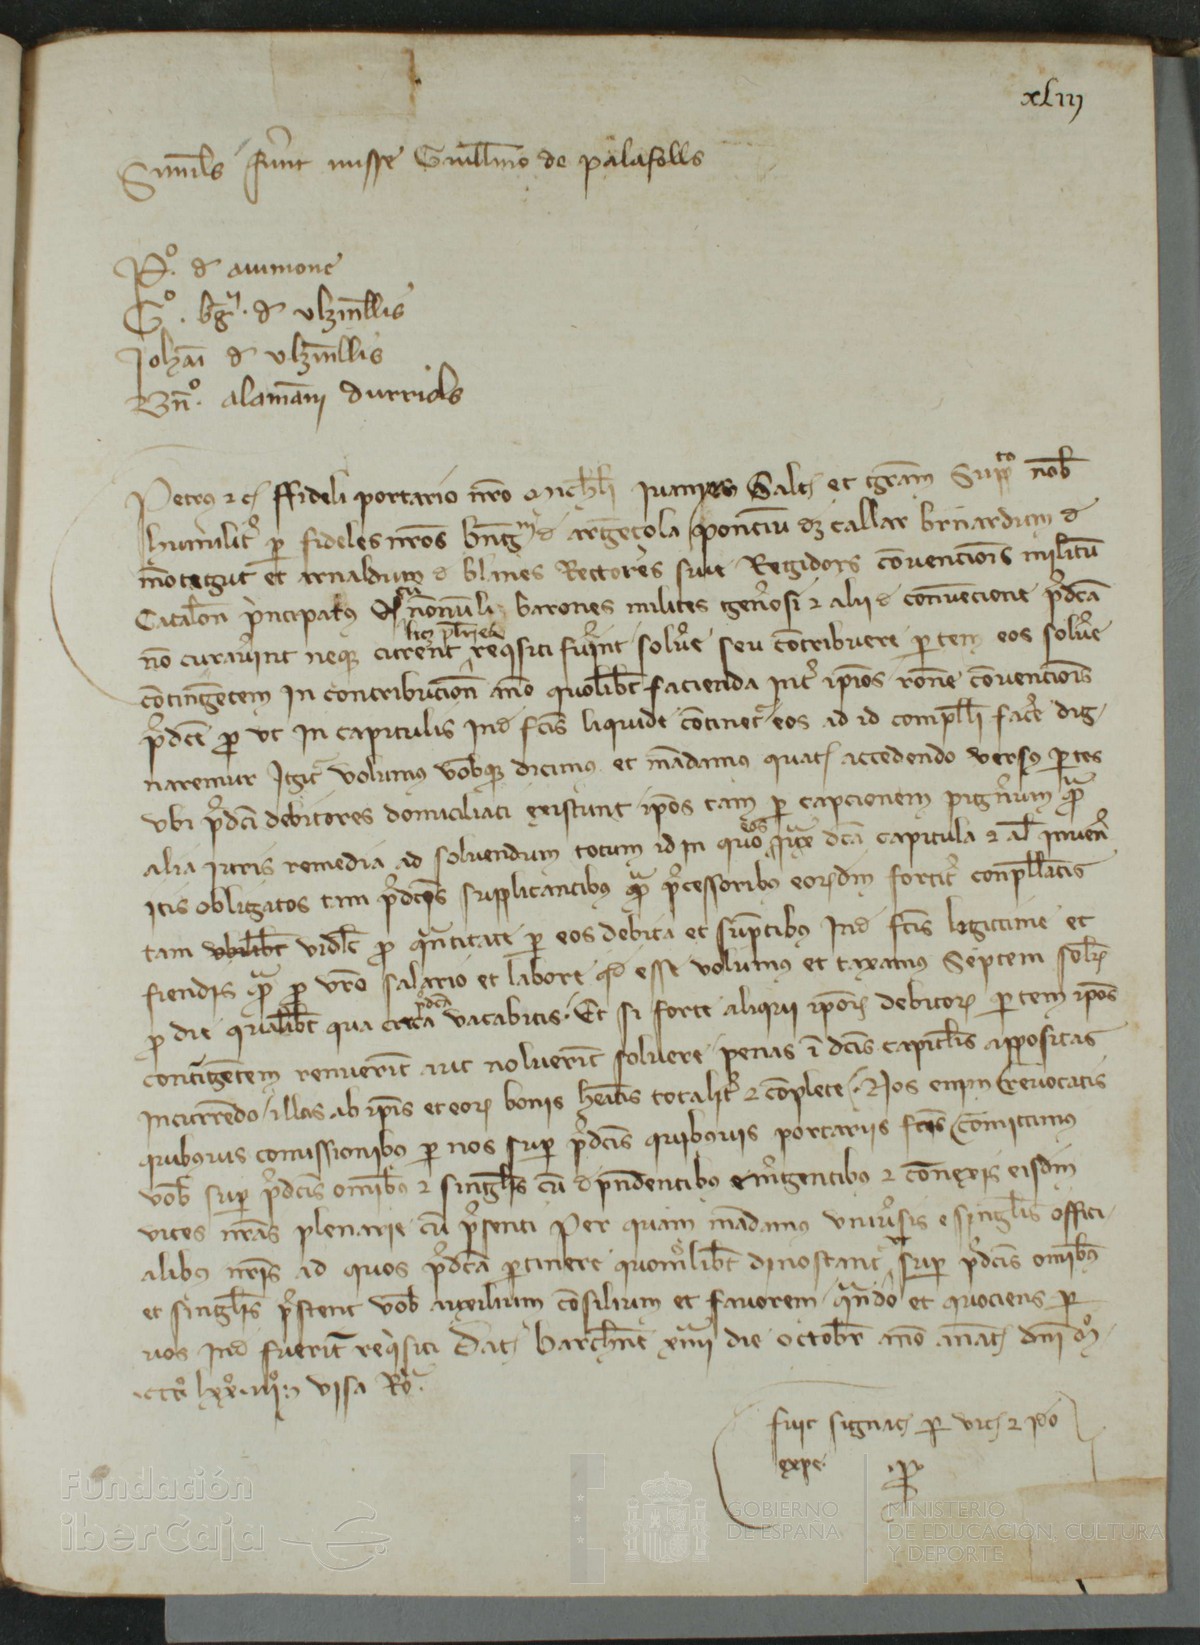 xliii
Simils fuert misse Guillmo de palafolls
P.º d avimone
G.º bg d ulzinellis
Johai d ulzinellis
Bnº. alamani durriols
Petrus etc ffideli portario nro Michli Salt et gram Suppto nob
humilit per fideles nros bng d argetola poncium dez callar brnardum d
motagut et arnaldum d blanes Rectores sive Regidors convencions militum
Cataln principatus Q nonulli barones milites generosi et alii d convencione pdca
no curaverint neqz curent licz reqsiti fuerint solve seu contribuere ptem eos solve
contingetem in contribucion ano quolibt facienda int ipsos rone convencions
pdce pro ut in capitulis ind fcis liquide continet eos ad id compelli face dig
naremur Igit volumus vobqz dicimus et mandamus quat accedendo versus ptes
ubi pdci debitores domiciliati existunt ipos tam per capcionem pignum qm
alia iuris remedia ad solvendum totum id in quo eos iux dca capitula et al inven
itis obligatos tam pdcis supplicantibus qm pcessoribus eorudem fortit conpellatis
tam vidlt pro quantitate per eos debita et suptibus ind fcis legittime et
fiendis qm pro vro salario et labore qd esse volumus et taxamus Septem sol
pro die qualibt qua circa pdca vacabitis. Et si forte aliqui ipor debitor ptem ipos
contingetem renuerint aut noluerint solvere penas i dcis capitlis appositas
incurrendo illas ab ipis et eor bonis heatis totalit et complete. Nos enim revocatis
quibusvis comissionibus per nos sup pdcis quibusvis portariis fcis comittimus
vob sup pdcis omibus et singlis cu dpndentibus emgentibus et connexis eisdm
vices nras plenarie cu psenti Per quam mandamus univsis e singlis offici
alibus nris ad quos pdca ptinere quomolibt dinoscant ut sup pdcis omibus
et singlis pstent vob auxilium consilium et favorem quando et quociens per
vos ind fuerit reqisiti Dat barchne xiiii die octobr ano anat dni Mº
.cccº lxxº. iiiiº. visa Ro.
fuit signat p vic et pdo
expe.
.P.
Fundación
iberCaja
GOBIERNO
DE ESPAÑA
MINISTERIO
DE EDUCACIÓN, CULTURA
Y DEPORTE